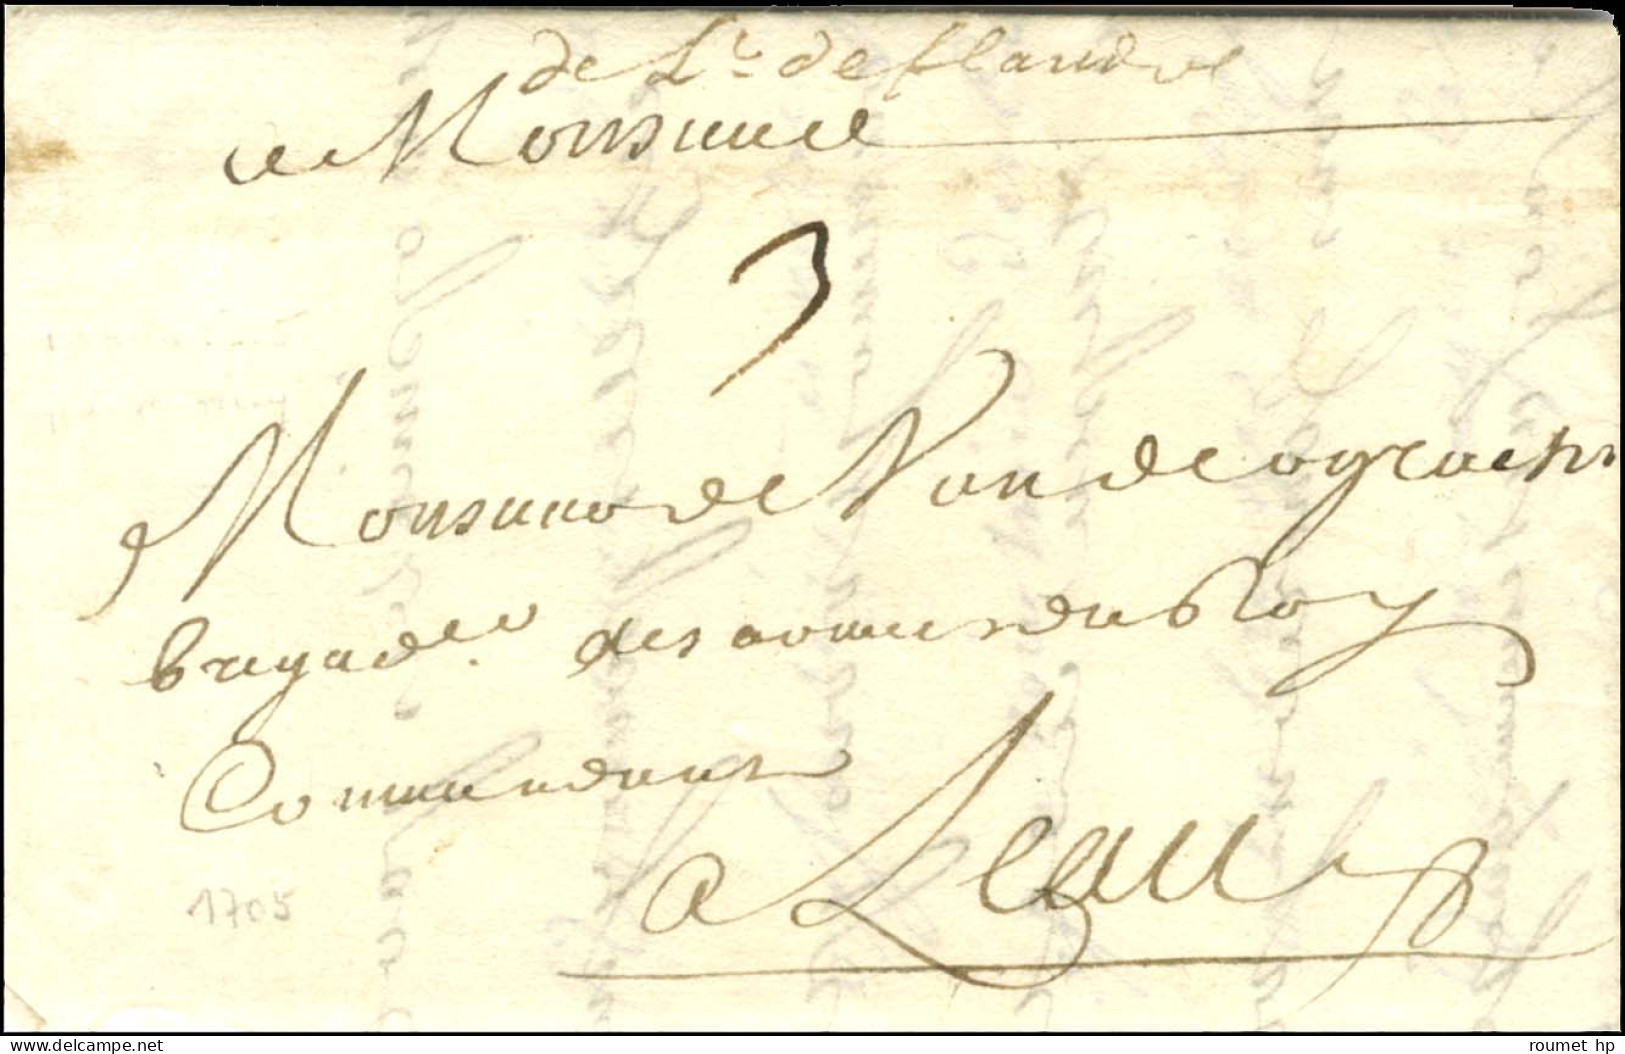 de L'r. de flandre
Monsieur
3
Monsieur de Vandeograesn
brigadier des armees du Roy
Commandant
a Leau
1705
delcampe.net
roumet hp